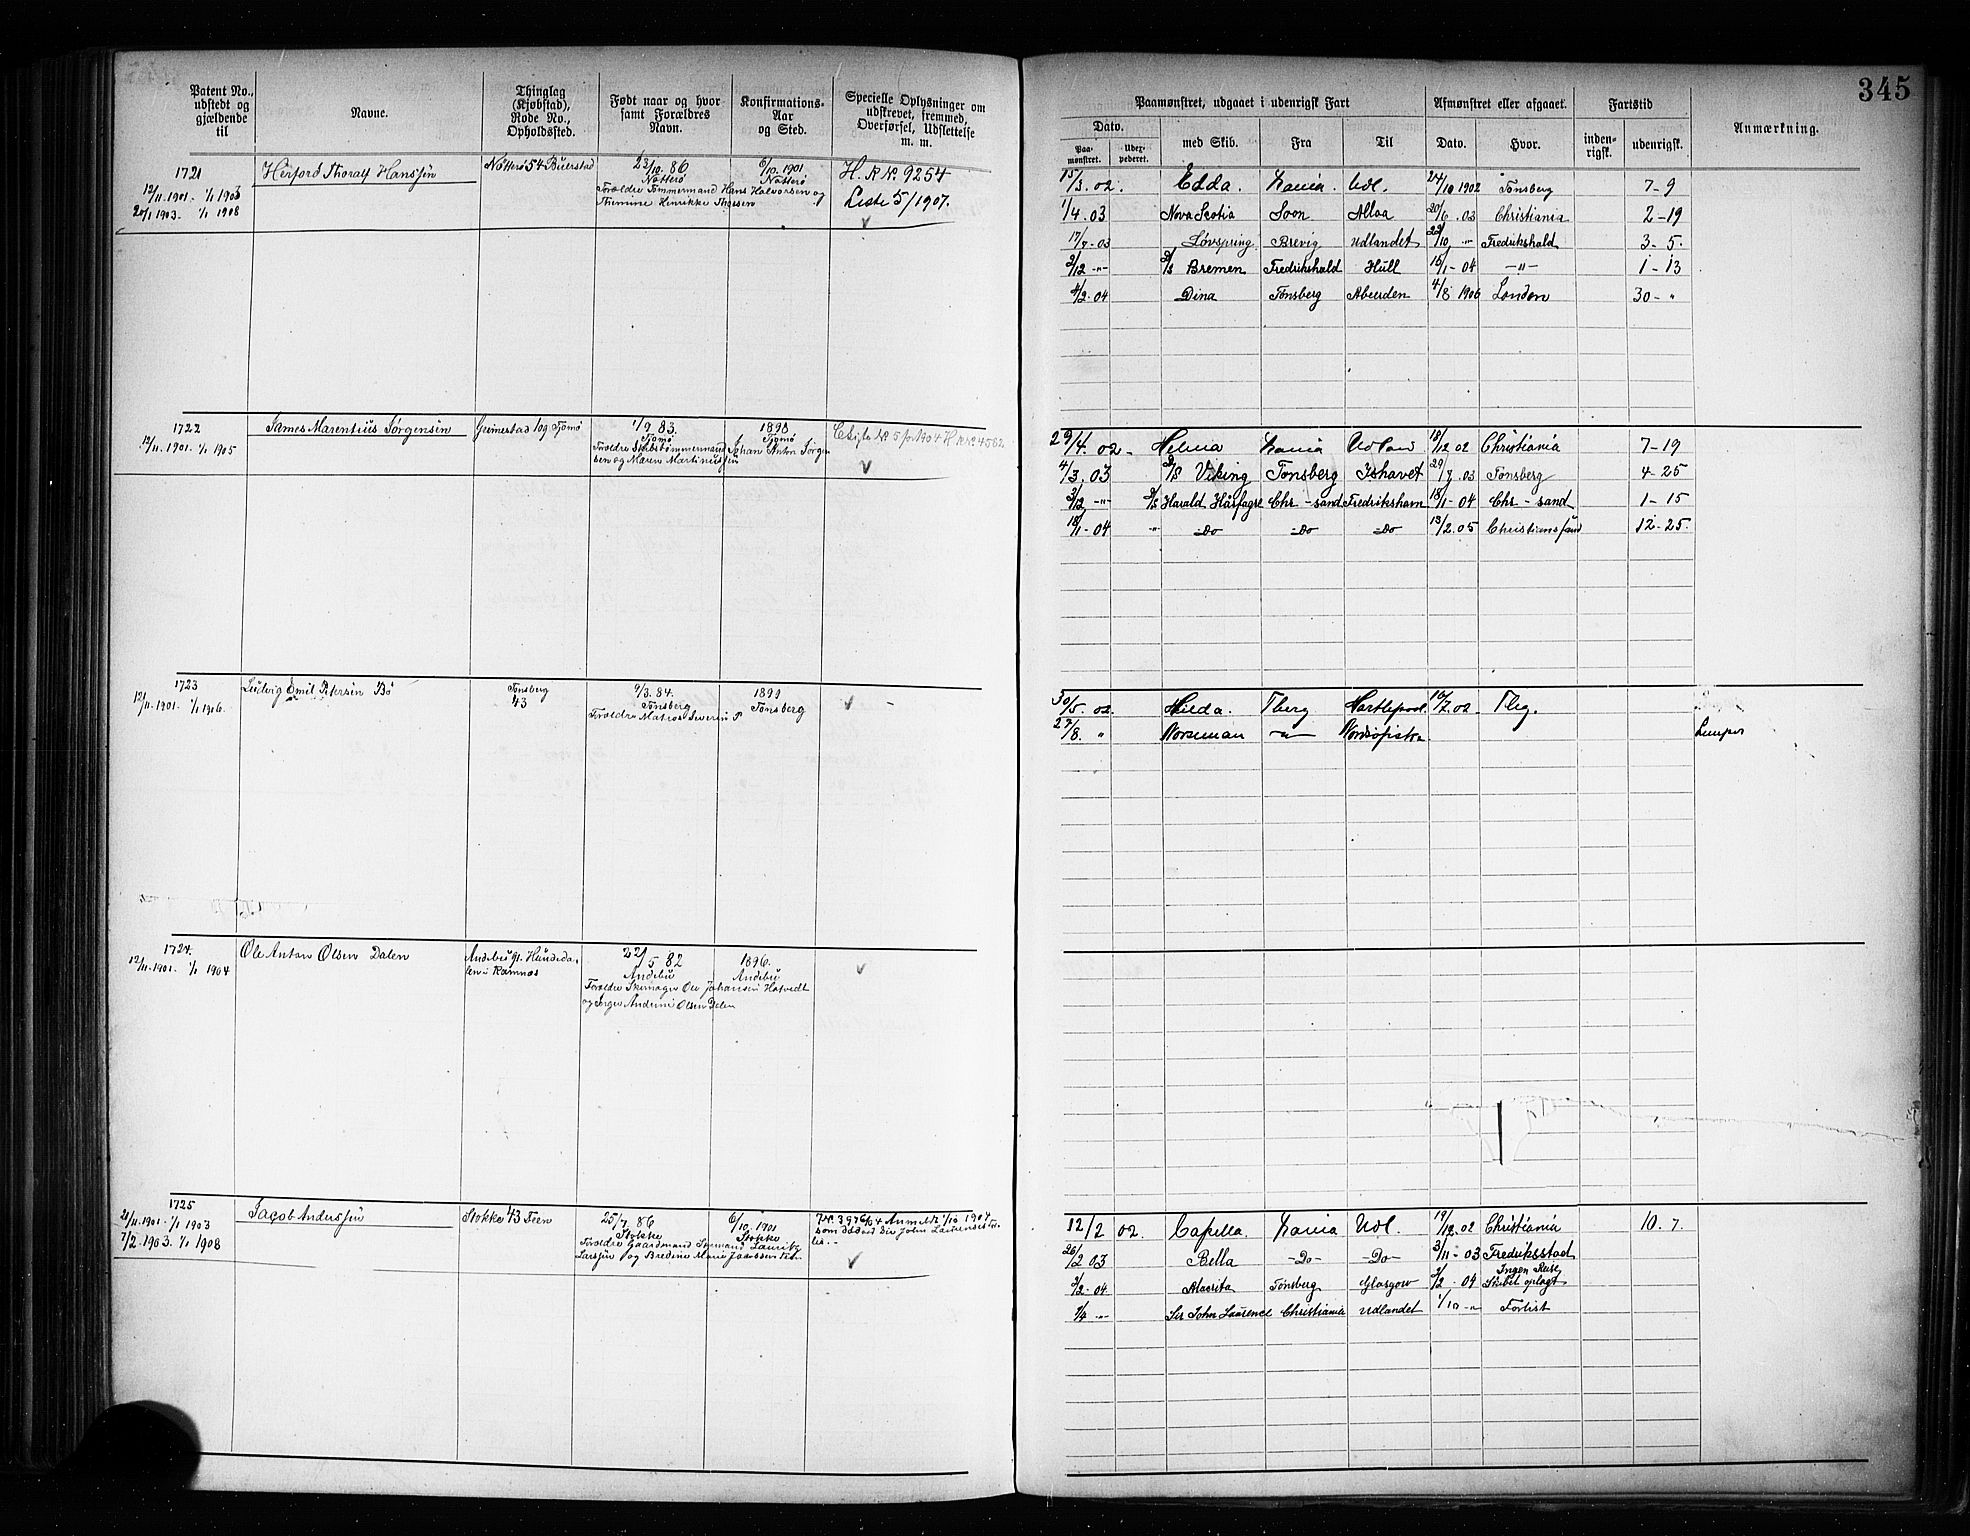 345
Patent No., udstedt og gjældende til
Navne.
Thinglag (Kjøbstad), Rode No., Opholdssted.
Født naar og hvor samt Forældres Navn.
Konfirmations-Aar og Sted.
Specielle Oplysninger om udskrevet, fremmed, Overførsel, Udslettelse m. m.
Paamønstret, udgaaet i udenrigsk Fart
Afmønstret eller afgaaet.
Fartstid
Anmærkning.
Dato.
Paa-mønstret.
Uder-pederet.
med Skib.
Fra
Til
Dato.
Hvor.
inden-rigsk.
udenrigsk.
1721
12/11 1901 - 1/1 1903
20/1 1903 - 1/1 1908
Herford Thoralf Hanssen
Nøtterø 54 Buerstad
23/10. 86
Nøtterø
Forældre Tømmermand Hans Halvorsen og
Henrikke
6/10. 1901
Nøtterø
H. R. No. 9254
Liste 5/1907.
15/3. 02. Edda. Lauia. Udl. 24/10 1902 Tønsberg 7-9
1/4. 03 Nova Scotia Soon Alloa 20/6. 03 Christiania 2-19
17/7-03 Løvspring Brevig Udlandet 22/10 -"- Fredrikshald 3-5.
2/12 -"- D/S Bremen Fredrikshald Hull 15/1-04 -"- 1-13
4/2. 04 Dina Tønsberg Aberden 4/8 1906 London 30-"
1722
12/11. 1901. 1/1 1905
James Marentius Jørgensen
Grimestad 1 og Tjømø
1/9 83.
Tjømø
Forældre Skibstømmermand Johan Anton Jørgen
sen og Maren Martinussen
1898
Tjømø
29/4. 02. Helena Lauia Udland 18/12 02 Christiania 7-19
4/3. 03 D/S Viking Tønsberg Ishavet 29/7. 03 Tønsberg 4-25
3/12 -"- D/S Harald Hårfagre Chr-sand Fredrikshavn 18/1-04 Chr-sand 1-15
18/1-04 " -Do -Do -Do 13/2. 05 Christianssand 12-25.
1723
12/11. 1901. 1/1 1906.
Ludvig Emil Petersen Bø
Tønsberg
43
9/3. 84.
Tønsberg
Forældre Matros Severin P
1899
Tønsberg
30/5. 02. Hilda. Tberg Hartlepool. 10/7. 02. Tbg.
27/8. " Norseman -"- Lemper
1724.
12/11. 1901. 1/1 1904
Ole Anton Olsen Dalen
Andebu gl. Hundeda-
len i Ramnes
22/5 82
Andebu
Forældre Skomager Ole Johansen Hotvedt
og Inger Andrine Olsen Dalen
1896.
Andebu
1725
21/11. 1901 - 1/1 1903
7/2. 1903. 1/1 1908
Jacob Anderssen
Stokke 43 Feen
25/7. 86
Stokke
Forældre Gaardmand Sømand Lauritz
Larssen og Bredine Marie Jacobsen Feen
6/10. 1901
Stokke
12/2 02. Capella. Lauia Udl. 19/12. 02 Christiania 10. 7.
26/2 03 Bella -Do- -Do- 3/11-03 Fredriksstad
2/2-04. Alacrita Tønsberg Glasgow 2/2-04 Ingen Reise
Skibet oplagt
7/4 -"- Sir John Laurence Christiania Udlandet 1/10 -"- Forlist